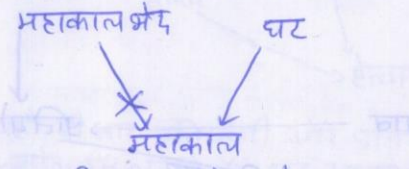 महाकाल भेद घट
महाकाल